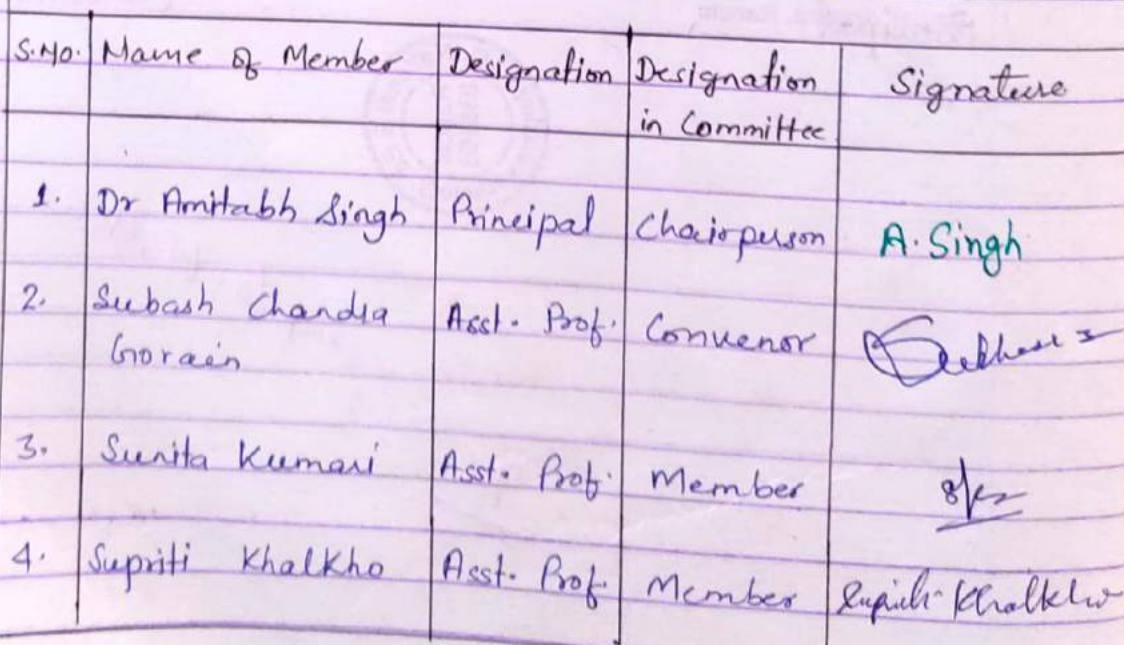 S.No. Name of Member Designation Designation Signature
in Committee
1. Dr Amitabh Singh Principal Chairperson A. Singh
2. Subash Chandra Asst. Prof. Convenor
Gorain
3. Sunita Kumari Asst. Prof. Member
4. Supriti Khalkho Asst. Prof. Member Supriti Khalkho